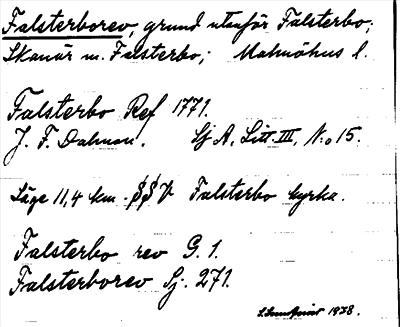 Falsterborev, grund utanför Falsterbo;
Skanör m. Falsterbo; Malmöhus l.
Falsterbo Ref 1771.
J. F. Dalman. Sj A, Litt. III, No 15.
Läge 11,4 km. SSV Falsterbo kyrka.
Falsterbo rev G. 1.
Falsterborev Sj. 271.
1928.